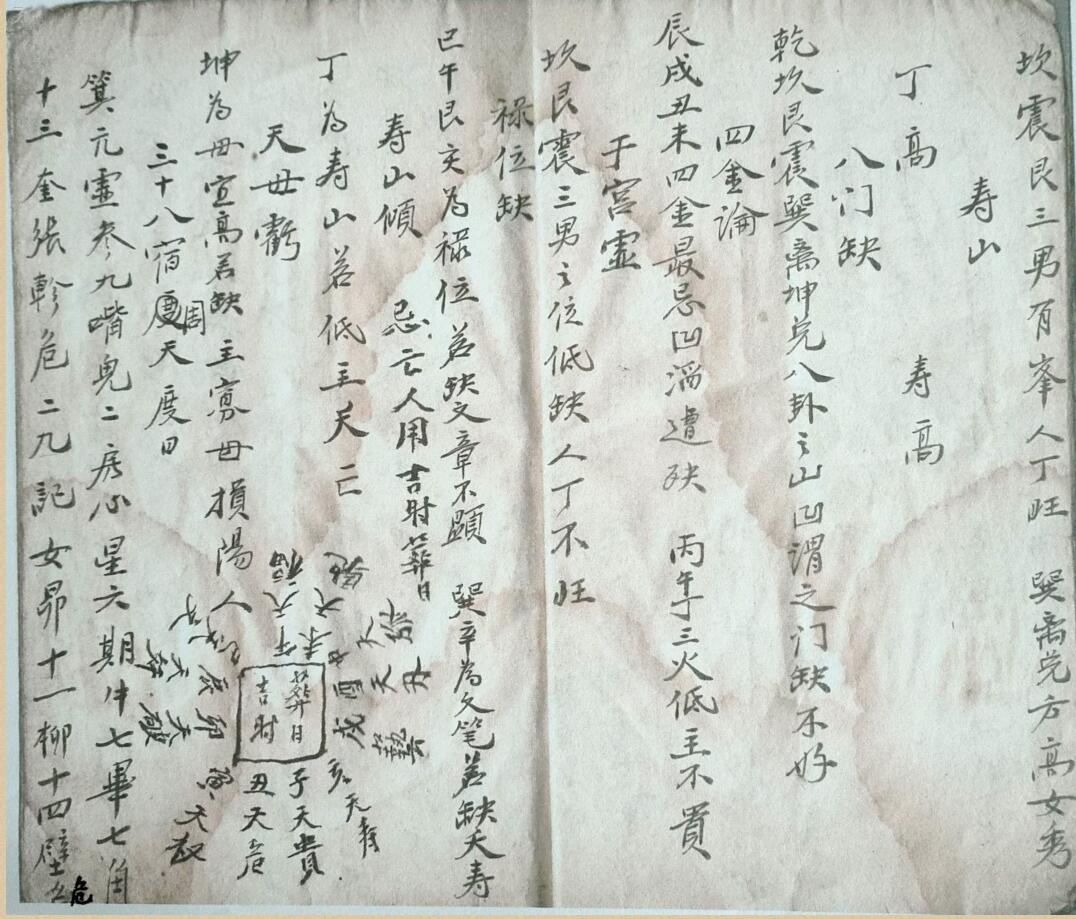 坎震艮三男有峯人丁旺 巽离兑方高女秀
寿山
丁高 寿高
八门缺
乾坎艮震巽离坤兑八卦之山凹谓之门缺不好
四金論
辰戌丑未四金最忌凹 遭 丙午丁三火低主不貴
于宫虚
坎艮震三男之位低缺人丁不旺
禄位缺
巳午艮亥为禄位若缺文章不顕 巽辛為文笔若缺夭寿
寿山傾 忌亡人用吉时葬日
丁為寿山若低主夭亡
天母虧
坤為母宜高若缺主寡母損陽人
三十八宿周天度日
箕元虚参九嘴鬼二房心星六期牛七畢七角
十三奎張軫危二九記女昴十一柳十四壁
危
葬日
吉时
子天貴
丑天危
寅天
卯天破
辰
午天福
未天
酉天
戌天
亥天寿